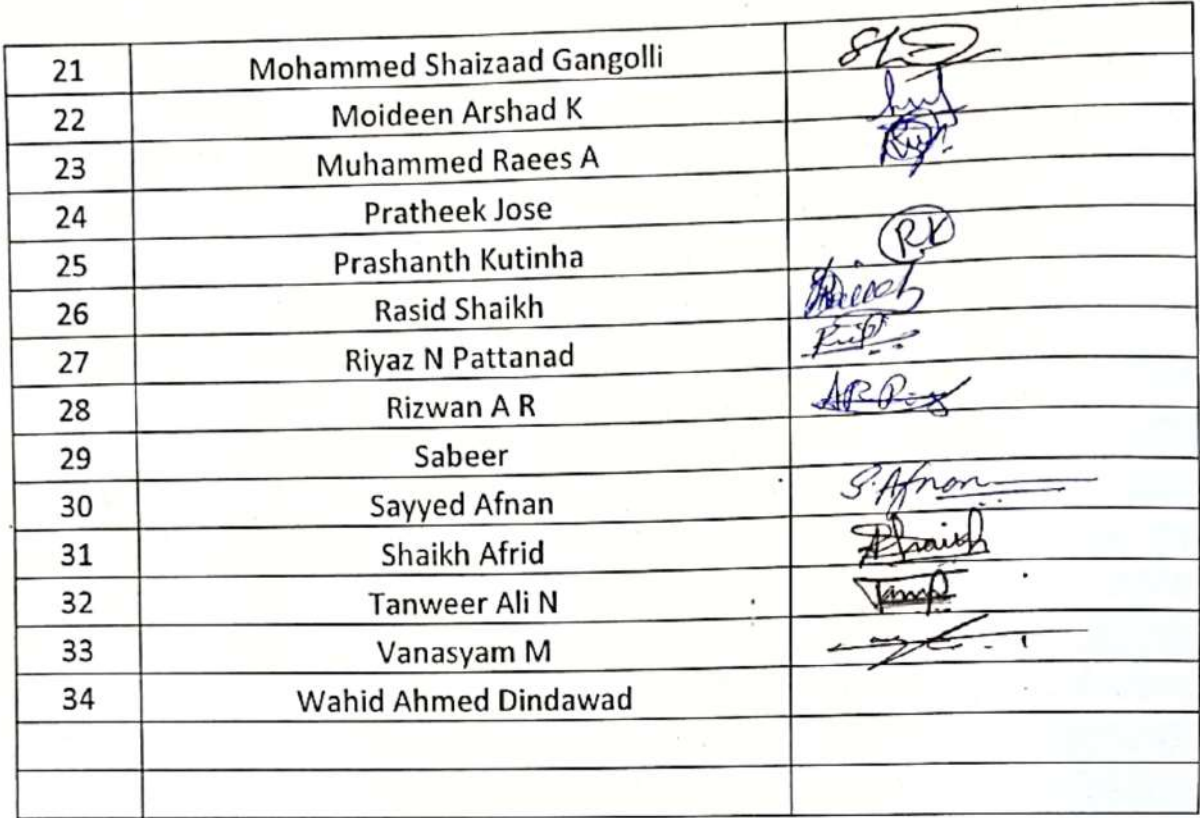 21 Mohammed Shaizaad Gangolli
22 Moideen Arshad K
23 Muhammed Raees A
24 Pratheek Jose
25 Prashanth Kutinha P.K
26 Rasid Shaikh
27 Riyaz N Pattanad
28 Rizwan A R
29 Sabeer
30 Sayyed Afnan S.Afnan
31 Shaikh Afrid
32 Tanweer Ali N
33 Vanasyam M
34 Wahid Ahmed Dindawad